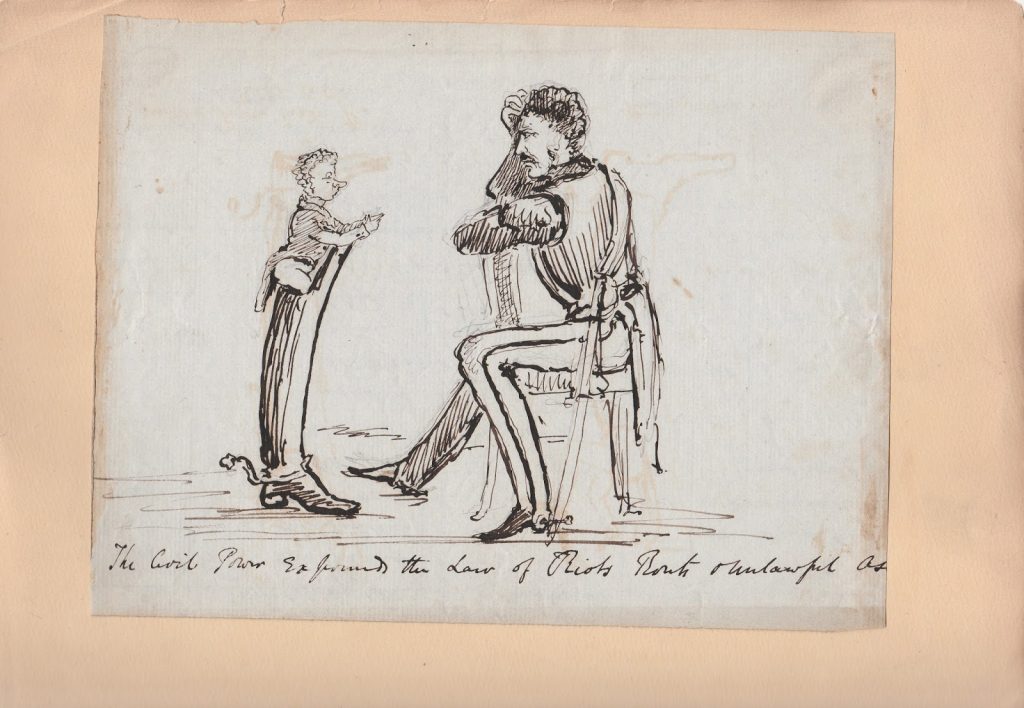 The Civil Power Expounds the Law of Riots Routs & unlawful As